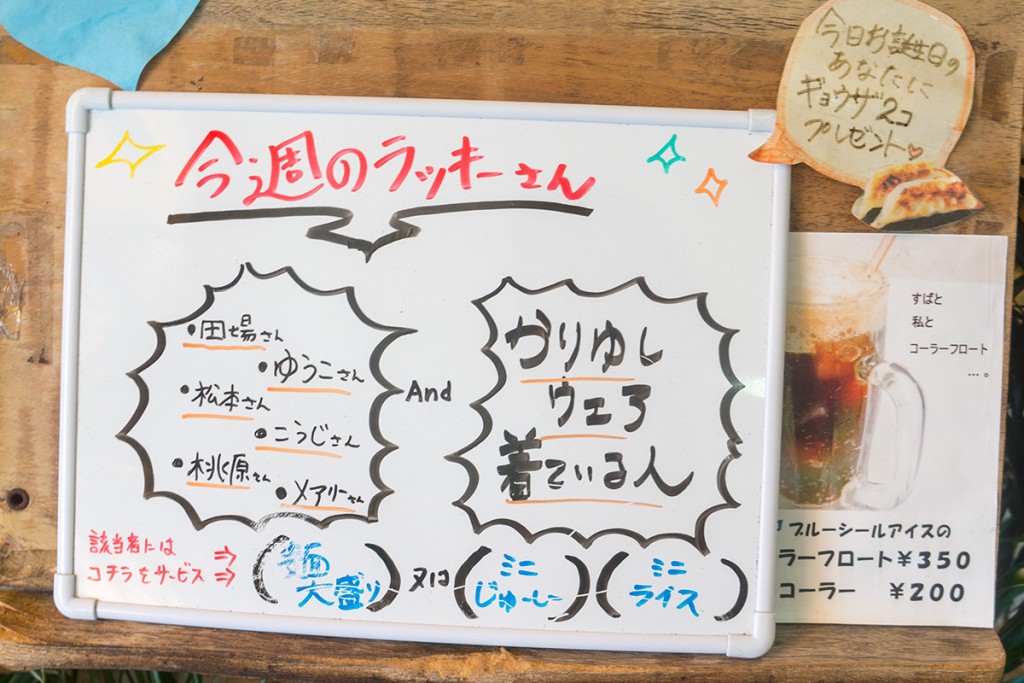 今日お誕生日の
あなたに
ギョウザ2コ
プレゼント♡
今週のラッキーさん
・田場さん
・ゆうこさん
・松本さん
・こうじさん
・桃原さん
・メアリーさん
And
かりゆし
ウェア
着ている人
該当者には
コチラをサービス
⇒
⇒
(麺大盛り) 又は (ミニじゅーしー) (ミニライス)
すばと
私と
コーラフロート
…。
ブルーシールアイスの
ラーフロート¥350
コーラー ¥200